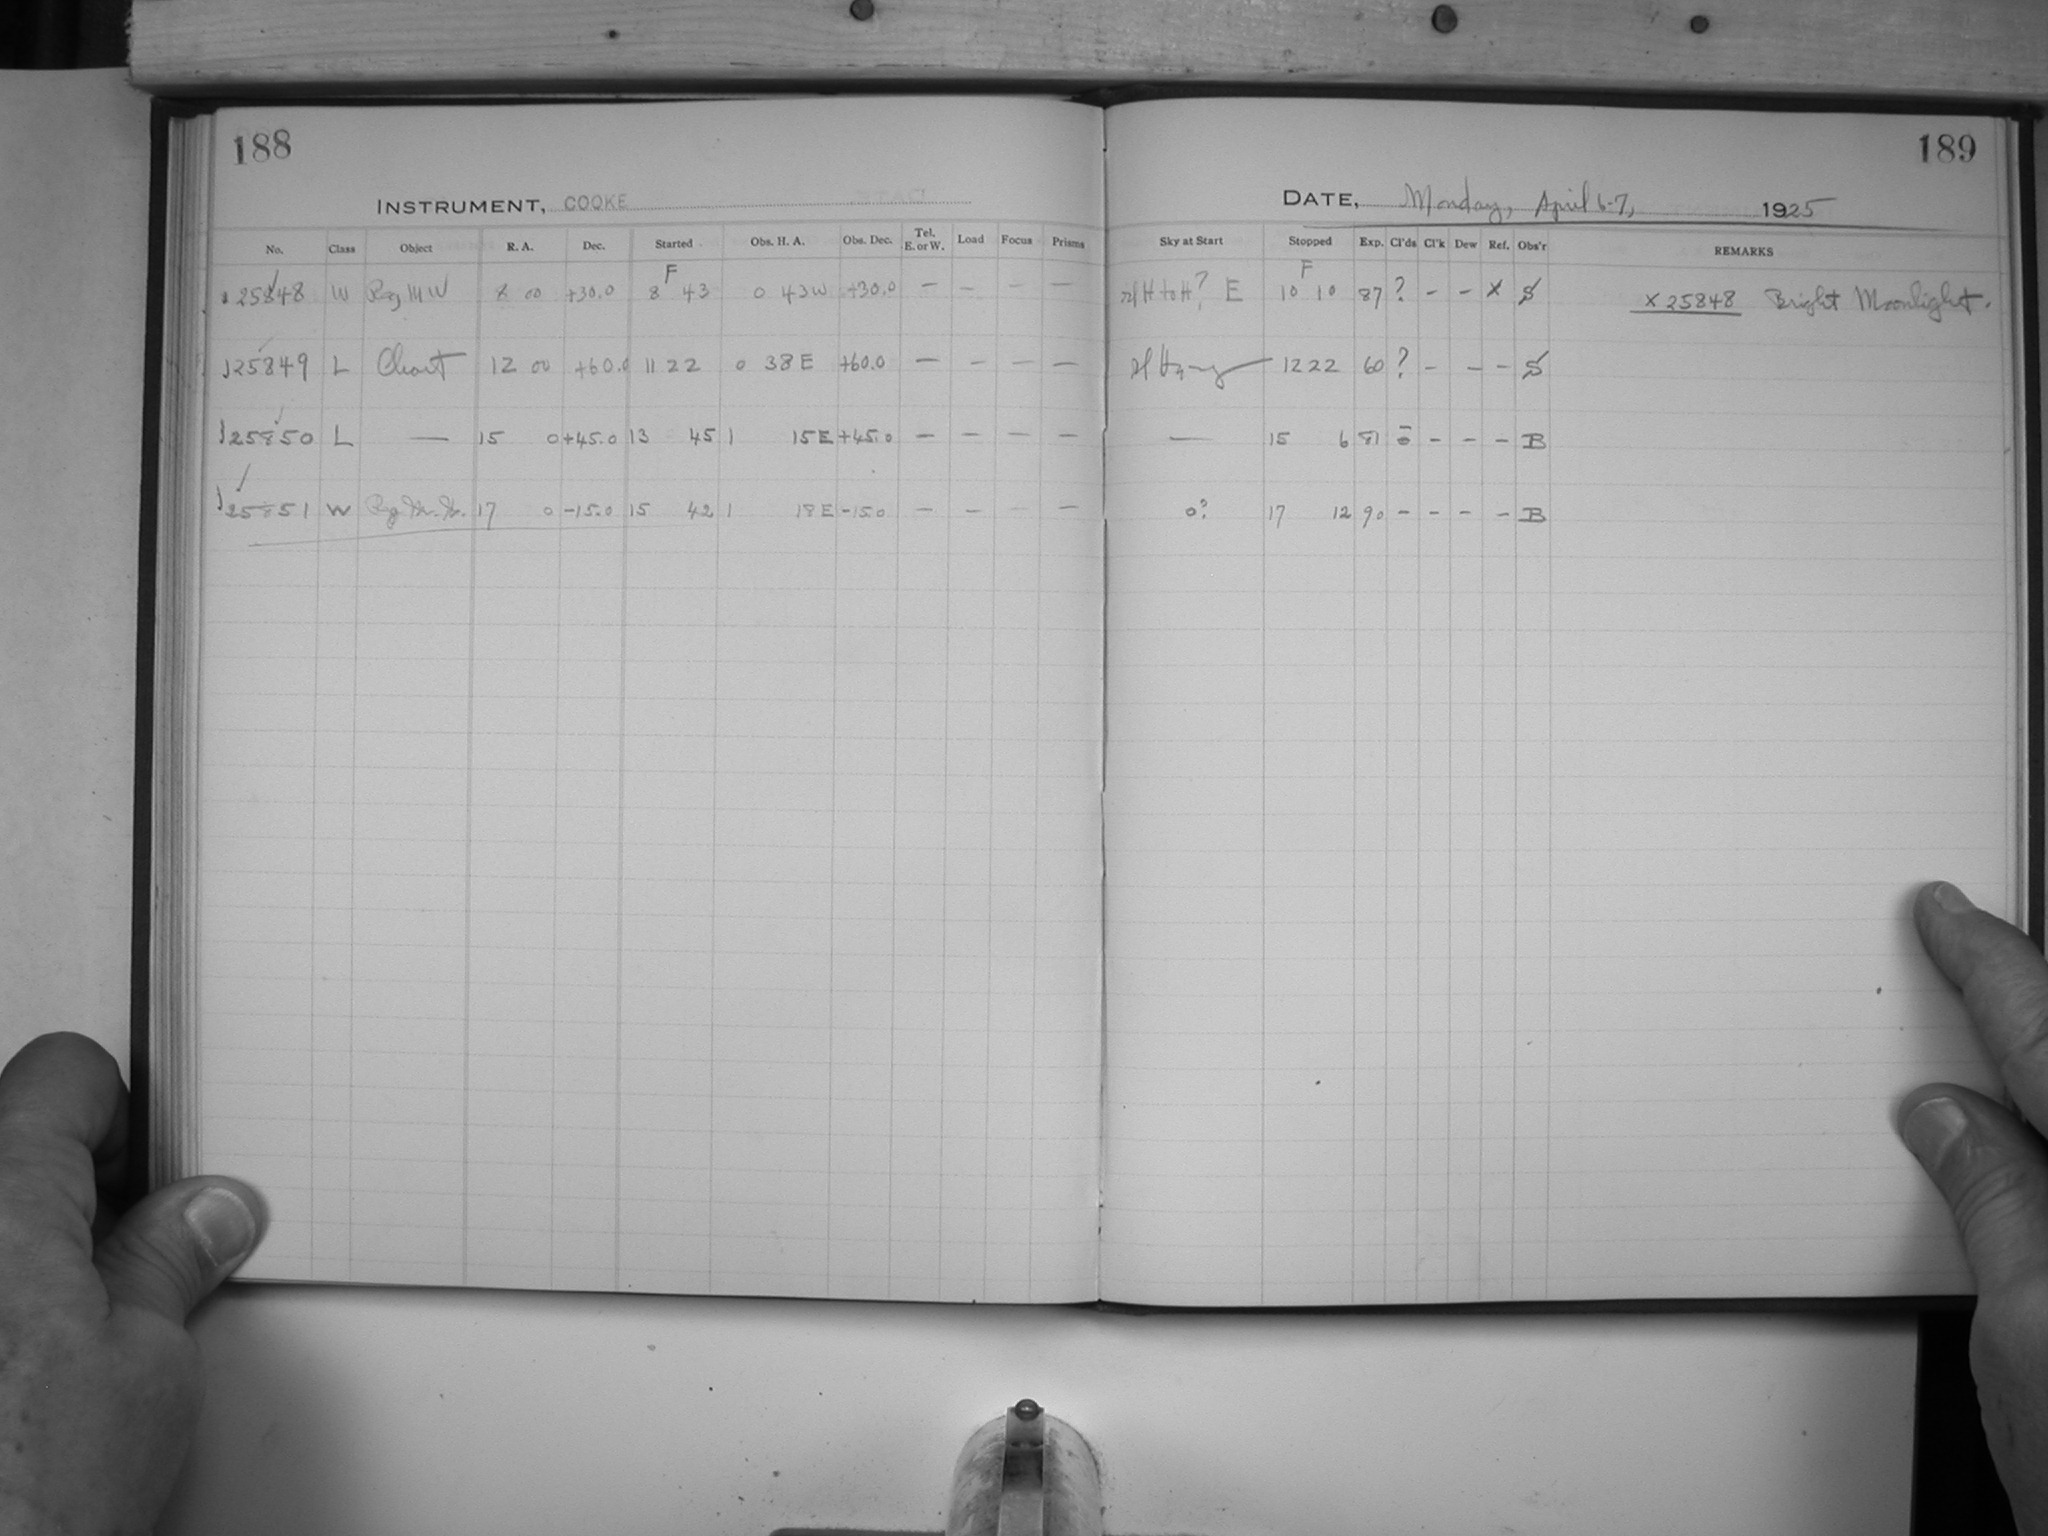 188
INSTRUMENT, COOKE
No. Class Object R. A. Dec. Started Obs. H. A. Obs. Dec. Tel. E. or W. Load Focus Prisms
F
25848 W Reg MW 8 00 +30.0 8 43 0 43W +30.0 — — — —
25849 L Chart 12 00 +60.0 11 22 0 38E +60.0 — — — —
25850 L — 15 0 +45.0 13 45 1 15E +45.0 — — — —
25851 W Reg 17 0 -15.0 15 42 1 18E -15.0 — — — —
189
DATE, Monday, April 6-7, 1925
Sky at Start Stopped Exp. Cl'ds Cl'k Dew Ref. Obs'r REMARKS
F
H to H? E 10 10 87 ? - - x S x 25848 Bright Moonlight.
12 22 60 ? - - - S
— 15 6 81 - - - B
0? 17 12 90 - - - - B